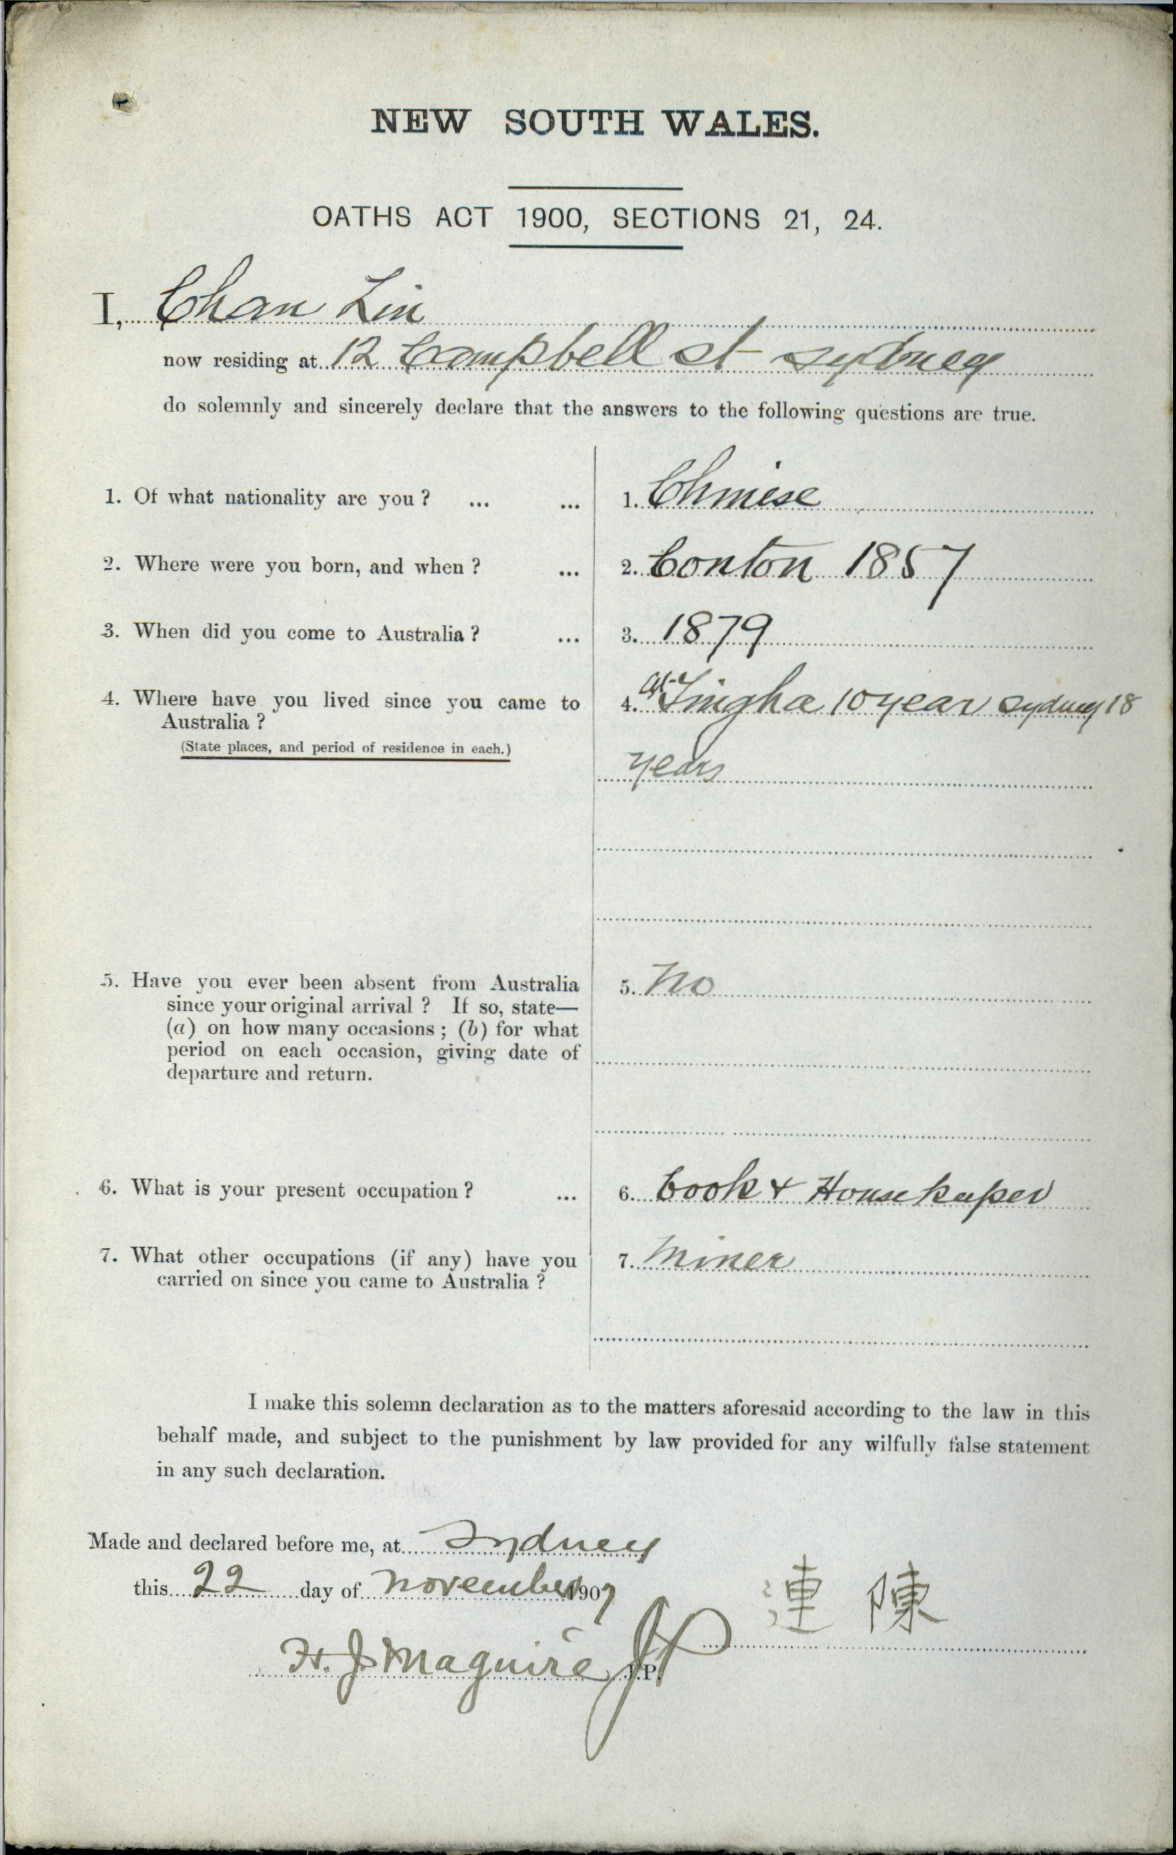 NEW SOUTH WALES.
OATHS ACT 1900, SECTIONS 21, 24.
I, Chan Lin
now residing at 12 Campbell st Sydney
do solemnly and sincerely declare that the answers to the following questions are true.
1. Of what nationality are you ? ... ... 1. Chinese
2. Where were you born, and when ? ... 2. Conton 1857
3. When did you come to Australia ? ... 3. 1879
4. Where have you lived since you came to 4. at Tingha 10 year Sydney 18
Australia ?
(State places, and period of residence in each.)
years
5. Have you ever been absent from Australia 5. No
since your original arrival ? If so, state—
(a) on how many occasions ; (b) for what
period on each occasion, giving date of
departure and return.
6. What is your present occupation ? ... 6. Cook & Housekeeper
7. What other occupations (if any) have you 7. Miner
carried on since you came to Australia ?
I make this solemn declaration as to the matters aforesaid according to the law in this
behalf made, and subject to the punishment by law provided for any wilfully false statement
in any such declaration.
Made and declared before me, at Sydney
this 22 day of November 1907
連 陳
H. J. Maguire JP
J.P.